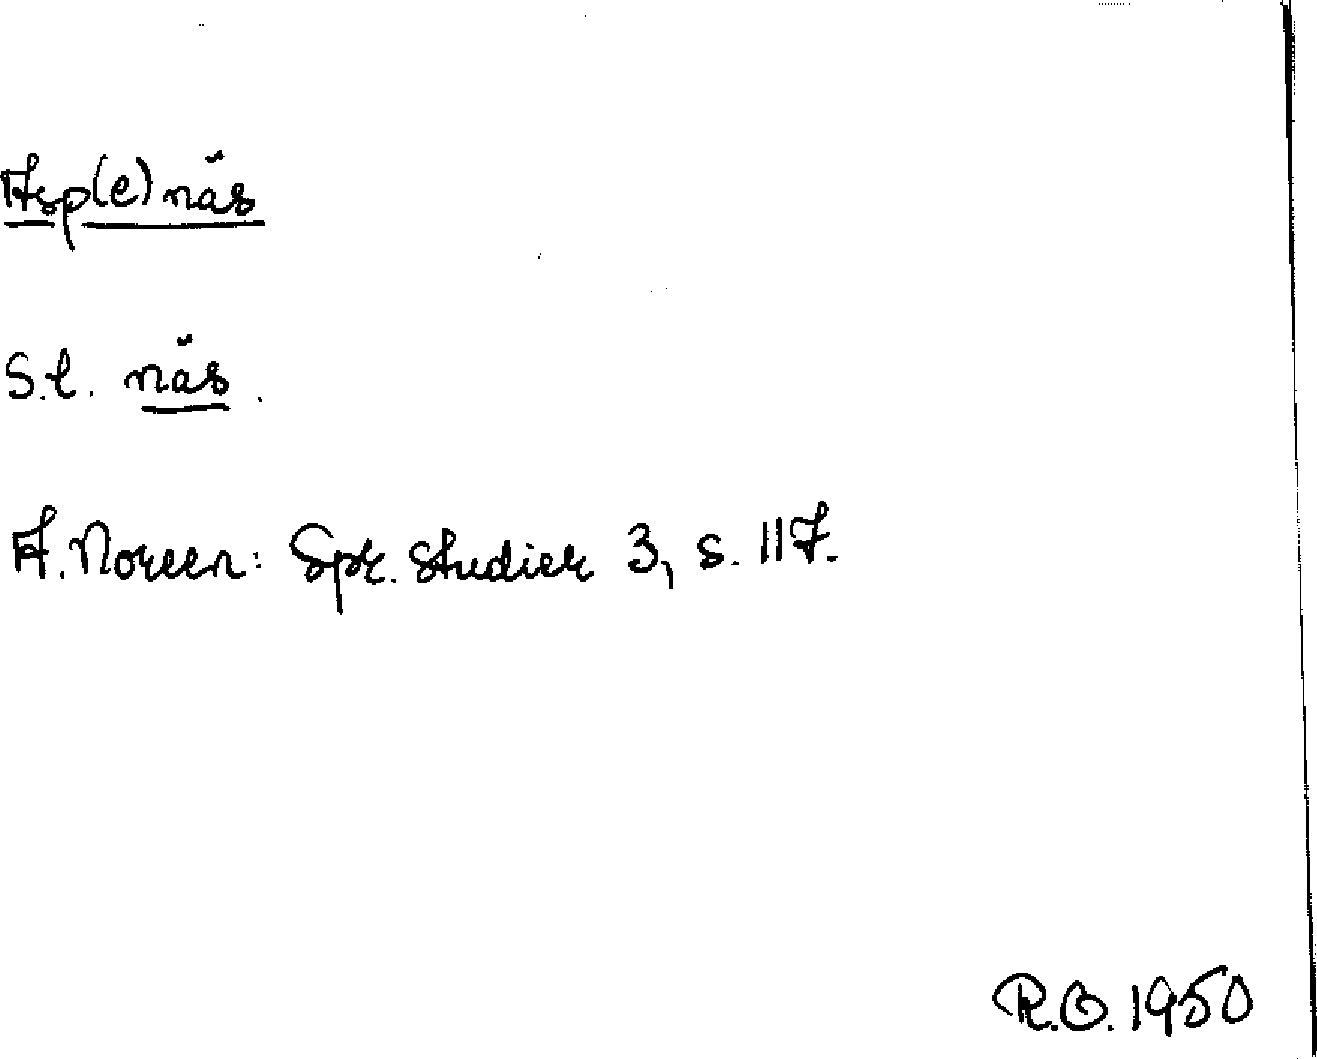 Asp(e)näs
S.l. näs.
A. Noreen: Spr. studier 3, s. 117.
R.O. 1950